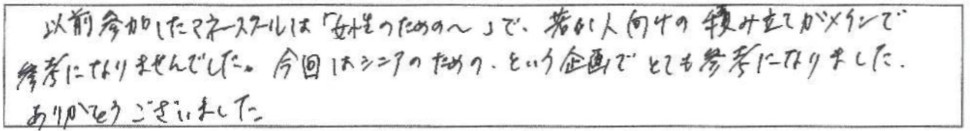 以前参加したマネースクールは「女性のための〜」で、若い人向けの積み立てがメインで
参考になりませんでした。今回はシニアのための、という企画でとても参考になりました.
ありがとうございました